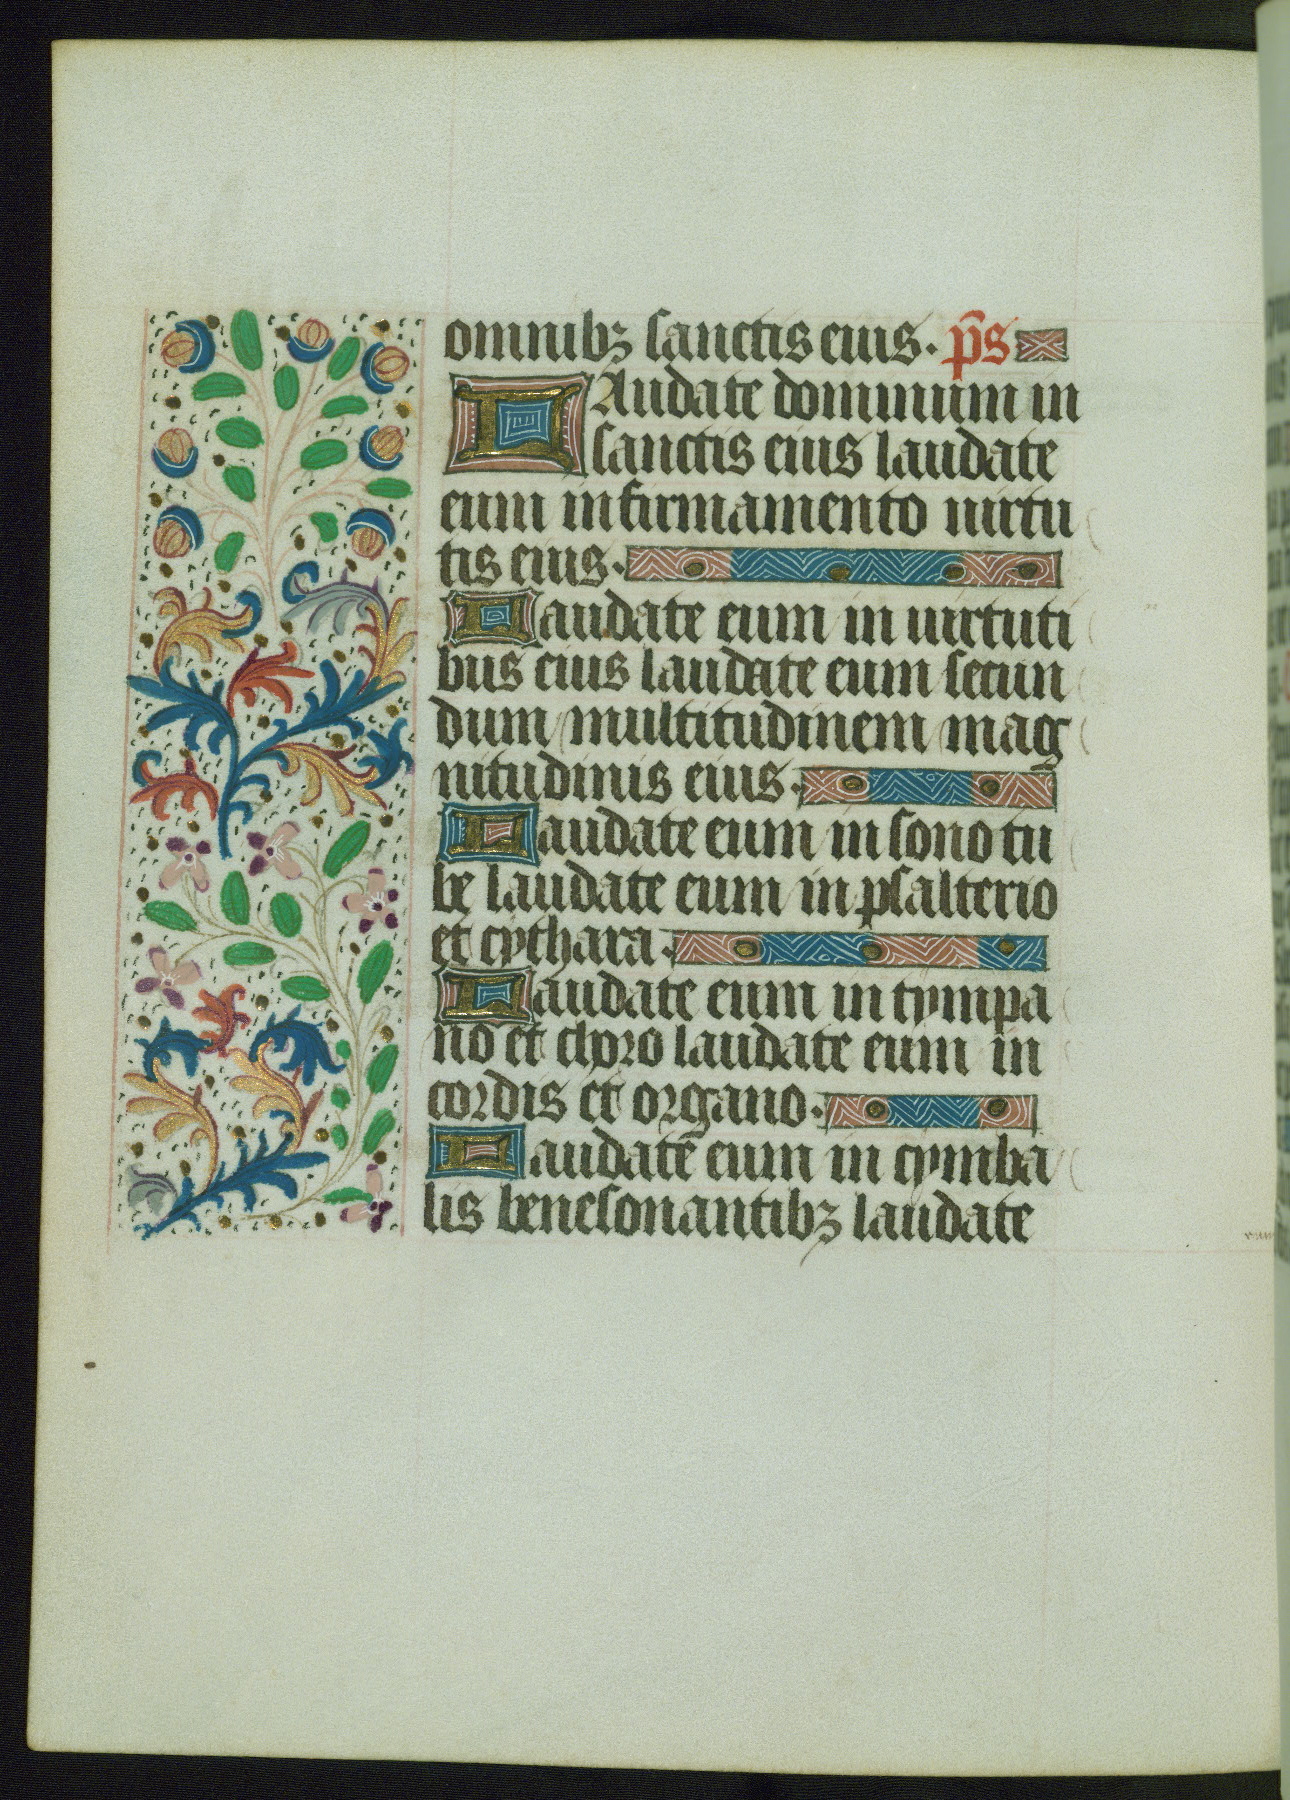 omnibꝫ sanctis eius. ps̄
LAudate dominum in
sanctis eius laudate
eum in firmamento uirtu
tis eius.
Laudate eum in uirtuti
bus eius laudate eum secun
dum multitudinem mag
nitudinis eius.
Laudate eum in sono tu
be laudate eum in psalterio
et cythara.
Laudate eum in tympa
no et choro laudate eum in
cordis et organo.
Laudate eum in cymba
lis benesonantibꝫ laudate